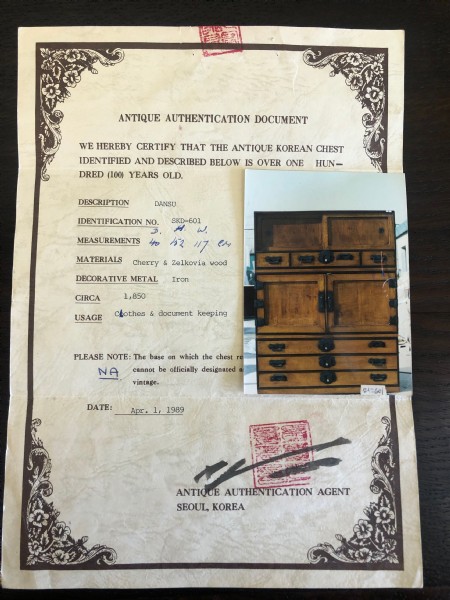 ANTIQUE AUTHENTICATION DOCUMENT
WE HEREBY CERTIFY THAT THE ANTIQUE KOREAN CHEST
IDENTIFIED AND DESCRIBED BELOW IS OVER ONE HUN–
DRED (100) YEARS OLD.
DESCRIPTION DANSU
IDENTIFICATION NO. SKD-601
D. H. W.
MEASUREMENTS 40 152 117 cm
MATERIALS Cherry & Zelkovia wood
DECORATIVE METAL Iron
CIRCA 1,850
USAGE Clothes & document keeping
PLEASE NOTE: The base on which the chest re
NA cannot be officially designated a
vintage.
DATE: Apr. 1, 1989
ANTIQUE AUTHENTICATION AGENT
SEOUL, KOREA